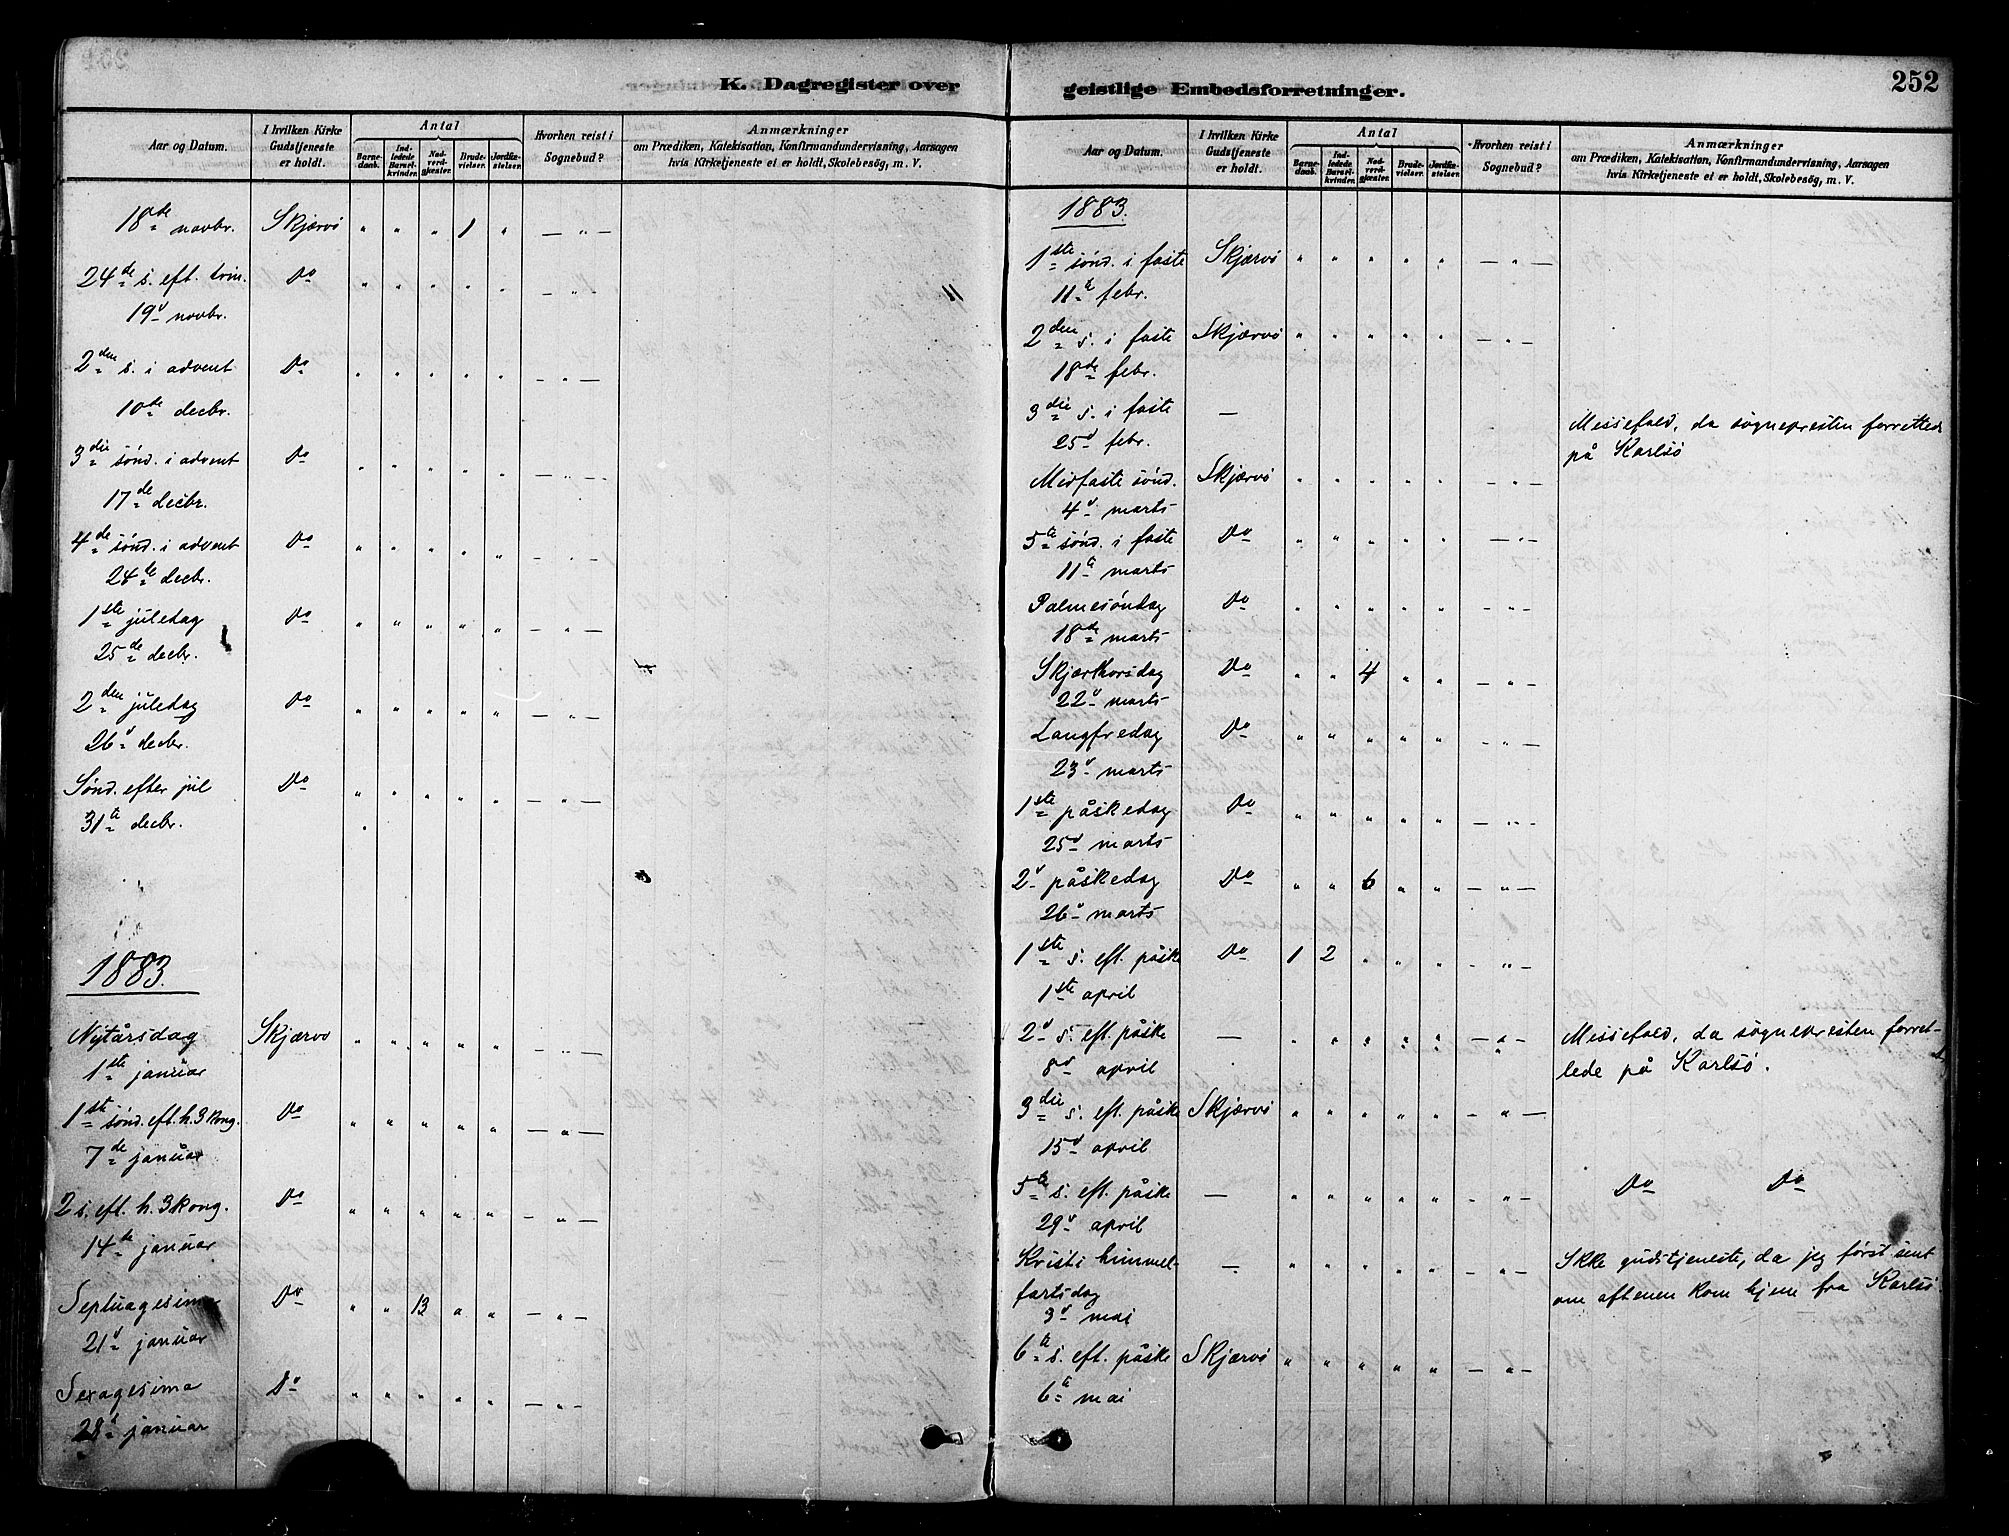 K. Dagregister over
Aar og Datum.
I hvilken Kirke
Gudstjeneste
er holdt.
Antal
Barne-
daab.
Ind-
ledede
Barsel-
kvinder.
Nad-
verd-
gjæster.
Brude-
vielser.
Jordfæ-
stelser.
Hvorhen reist i
Sognebud?
Anmærkninger
om Prædiken, Katekisation, Konfirmandundervisning, Aarsagen
hvis Kirketjeneste ei er holdt, Skolebesög, m. V.
18de novbr. Skjærvö " " " 1 " — " —
24de s. eft. trin. Do " " " " " — " —
19d novbr.
2den s. i advent Do " " " " " — " —
10de decbr.
3die sönd. i advent Do " " " " " — " —
17de decbr.
4de sönd. i advent Do " " " " " — " —
24de decbr.
1ste juledag Do " " " " " — " —
25de decbr.
2den juledag Do " " " " " — " —
26d decbr.
Sönd. efter jul Do " " " " " — " —
31te decbr.
1883.
Nytårsdag Skjærvö " " " " " — " —
1ste januar
1ste sönd. eft. h. 3 kong. Do " " " " " — " —
7de januar
2 s. eft. h. 3 kong. Do " " " " " — " —
14de januar
Septuagesima Do " " 13 " " — " —
21d januar
Sexagesima Do " " " " " — " —
28d januar
geistlige Embedsforretninger.
252
Aar og Datum.
I hvilken Kirke
Gudstjeneste
er holdt.
Antal
Barne-
daab.
Ind-
ledede
Barsel-
kvinder.
Nad-
verd-
gjæster.
Brude-
vielser.
Jordfæ-
stelser.
Hvorhen reist i
Sognebud?
Anmærkninger
om Prædiken, Katekisation, Konfirmandundervisning, Aarsagen
hvis Kirketjeneste ei er holdt, Skolebesög, m. V.
1883.
1ste sönd. i faste Skjærvö " " " " " — " —
11te febr.
2den s. i faste Skjærvö " " " " " — " —
18de febr.
3die s. i faste — Messefald, da sognepresten forrettede
25d febr. på Karlsö
Midfaste sönd. Skjærvö " " " " " — " —
4d marts
5te sönd. i faste Do " " " " " — " —
11te marts
Palmesöndag Do " " " " " — " —
18de marts
Skjærthorsdag Do " " 4 " " — " —
22d marts
Langfredag Do " " " " " — " —
23d marts
1ste påskedag Do " " " " " — " —
25d marts
2d påskedag Do " " 6 " " — " —
26d marts
1ste s. eft. påske Do 1 2 " " " — " —
1ste april
2d s. eft. påske — " " " " " — " — Messefald, da sognepresten forret-
8d april tede på Karlsö.
3die s. eft. påske Skjærvö " " " " " — " —
15d april
5te s. eft. påske — " " " " " — " — Do Do
29d april
Kristi himmel- — " " " " " — " — Ikke gudstjeneste, da jeg först sent
fartsdag om aftenen kom hjem fra Karlsö
3d mai
6te s. eft. påske Skjærvö " " " " " — " —
6te mai